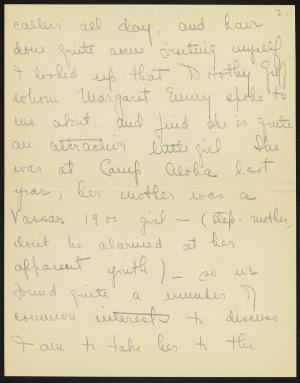 2.
callers all day, and have
done quite some visiting myself.
I looked up that Dorothy
whom Margaret Emery spoke to
me about, and find she is quite
an attractive little girl. She
was at Camp Aloha last
year, her mother was a
Vassar 1900 girl — (step-mother,
don't be alarmed at her
apparent youth) — so we
found quite a number of
common interests to discuss
I am to take her to the